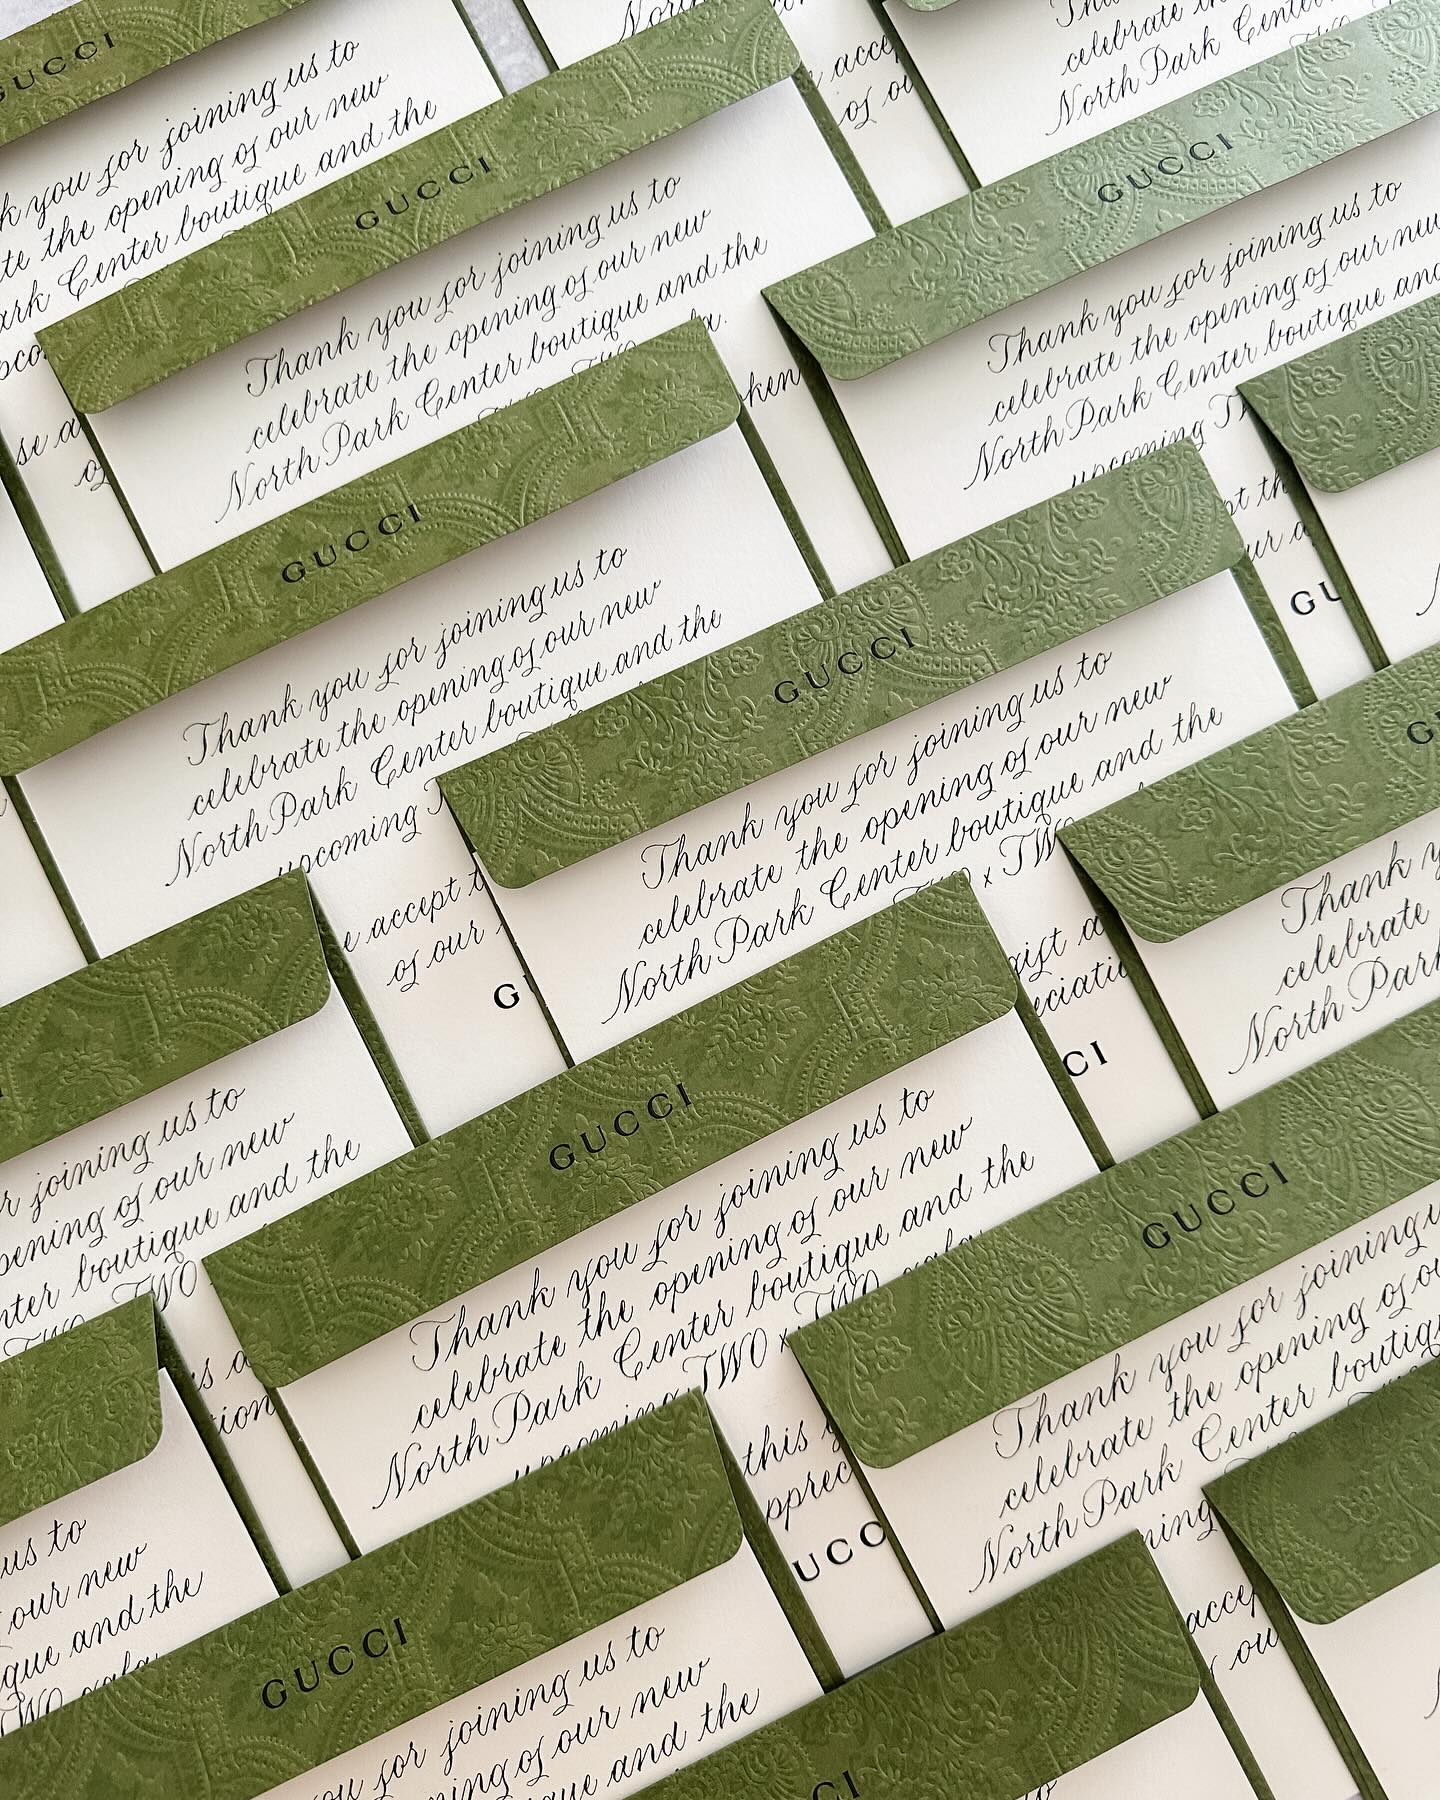 GUCCI
you for joining us to
the opening of our new
Center boutique and the
celebrate the
North Park Center
GUCCI
Thank you for joining us to
celebrate the opening of our new
North Park Center boutique and the
GUCCI
Thank you for joining us to
celebrate the opening of our new
North Park Center boutique
upcoming
GUCCI
Thank you for joining us to
celebrate the opening of our new
North Park Center boutique and the
upcoming
accept
of our
GUCCI
Thank you for joining us to
celebrate the opening of our new
North Park Center boutique and the
TWO x TWO
gift
joining us to
of our new
boutique and the
TWO
GUCCI
Thank you for joining us to
celebrate the opening of our new
North Park Center boutique and the
upcoming TWO x TWO gala
this
Thank
celebrate
North Park
GUCCI
Thank you for joining
celebrate the opening of
North Park Center
us to
our new
and the
TWO gala
GUCCI
you for joining us to
of our new
and the